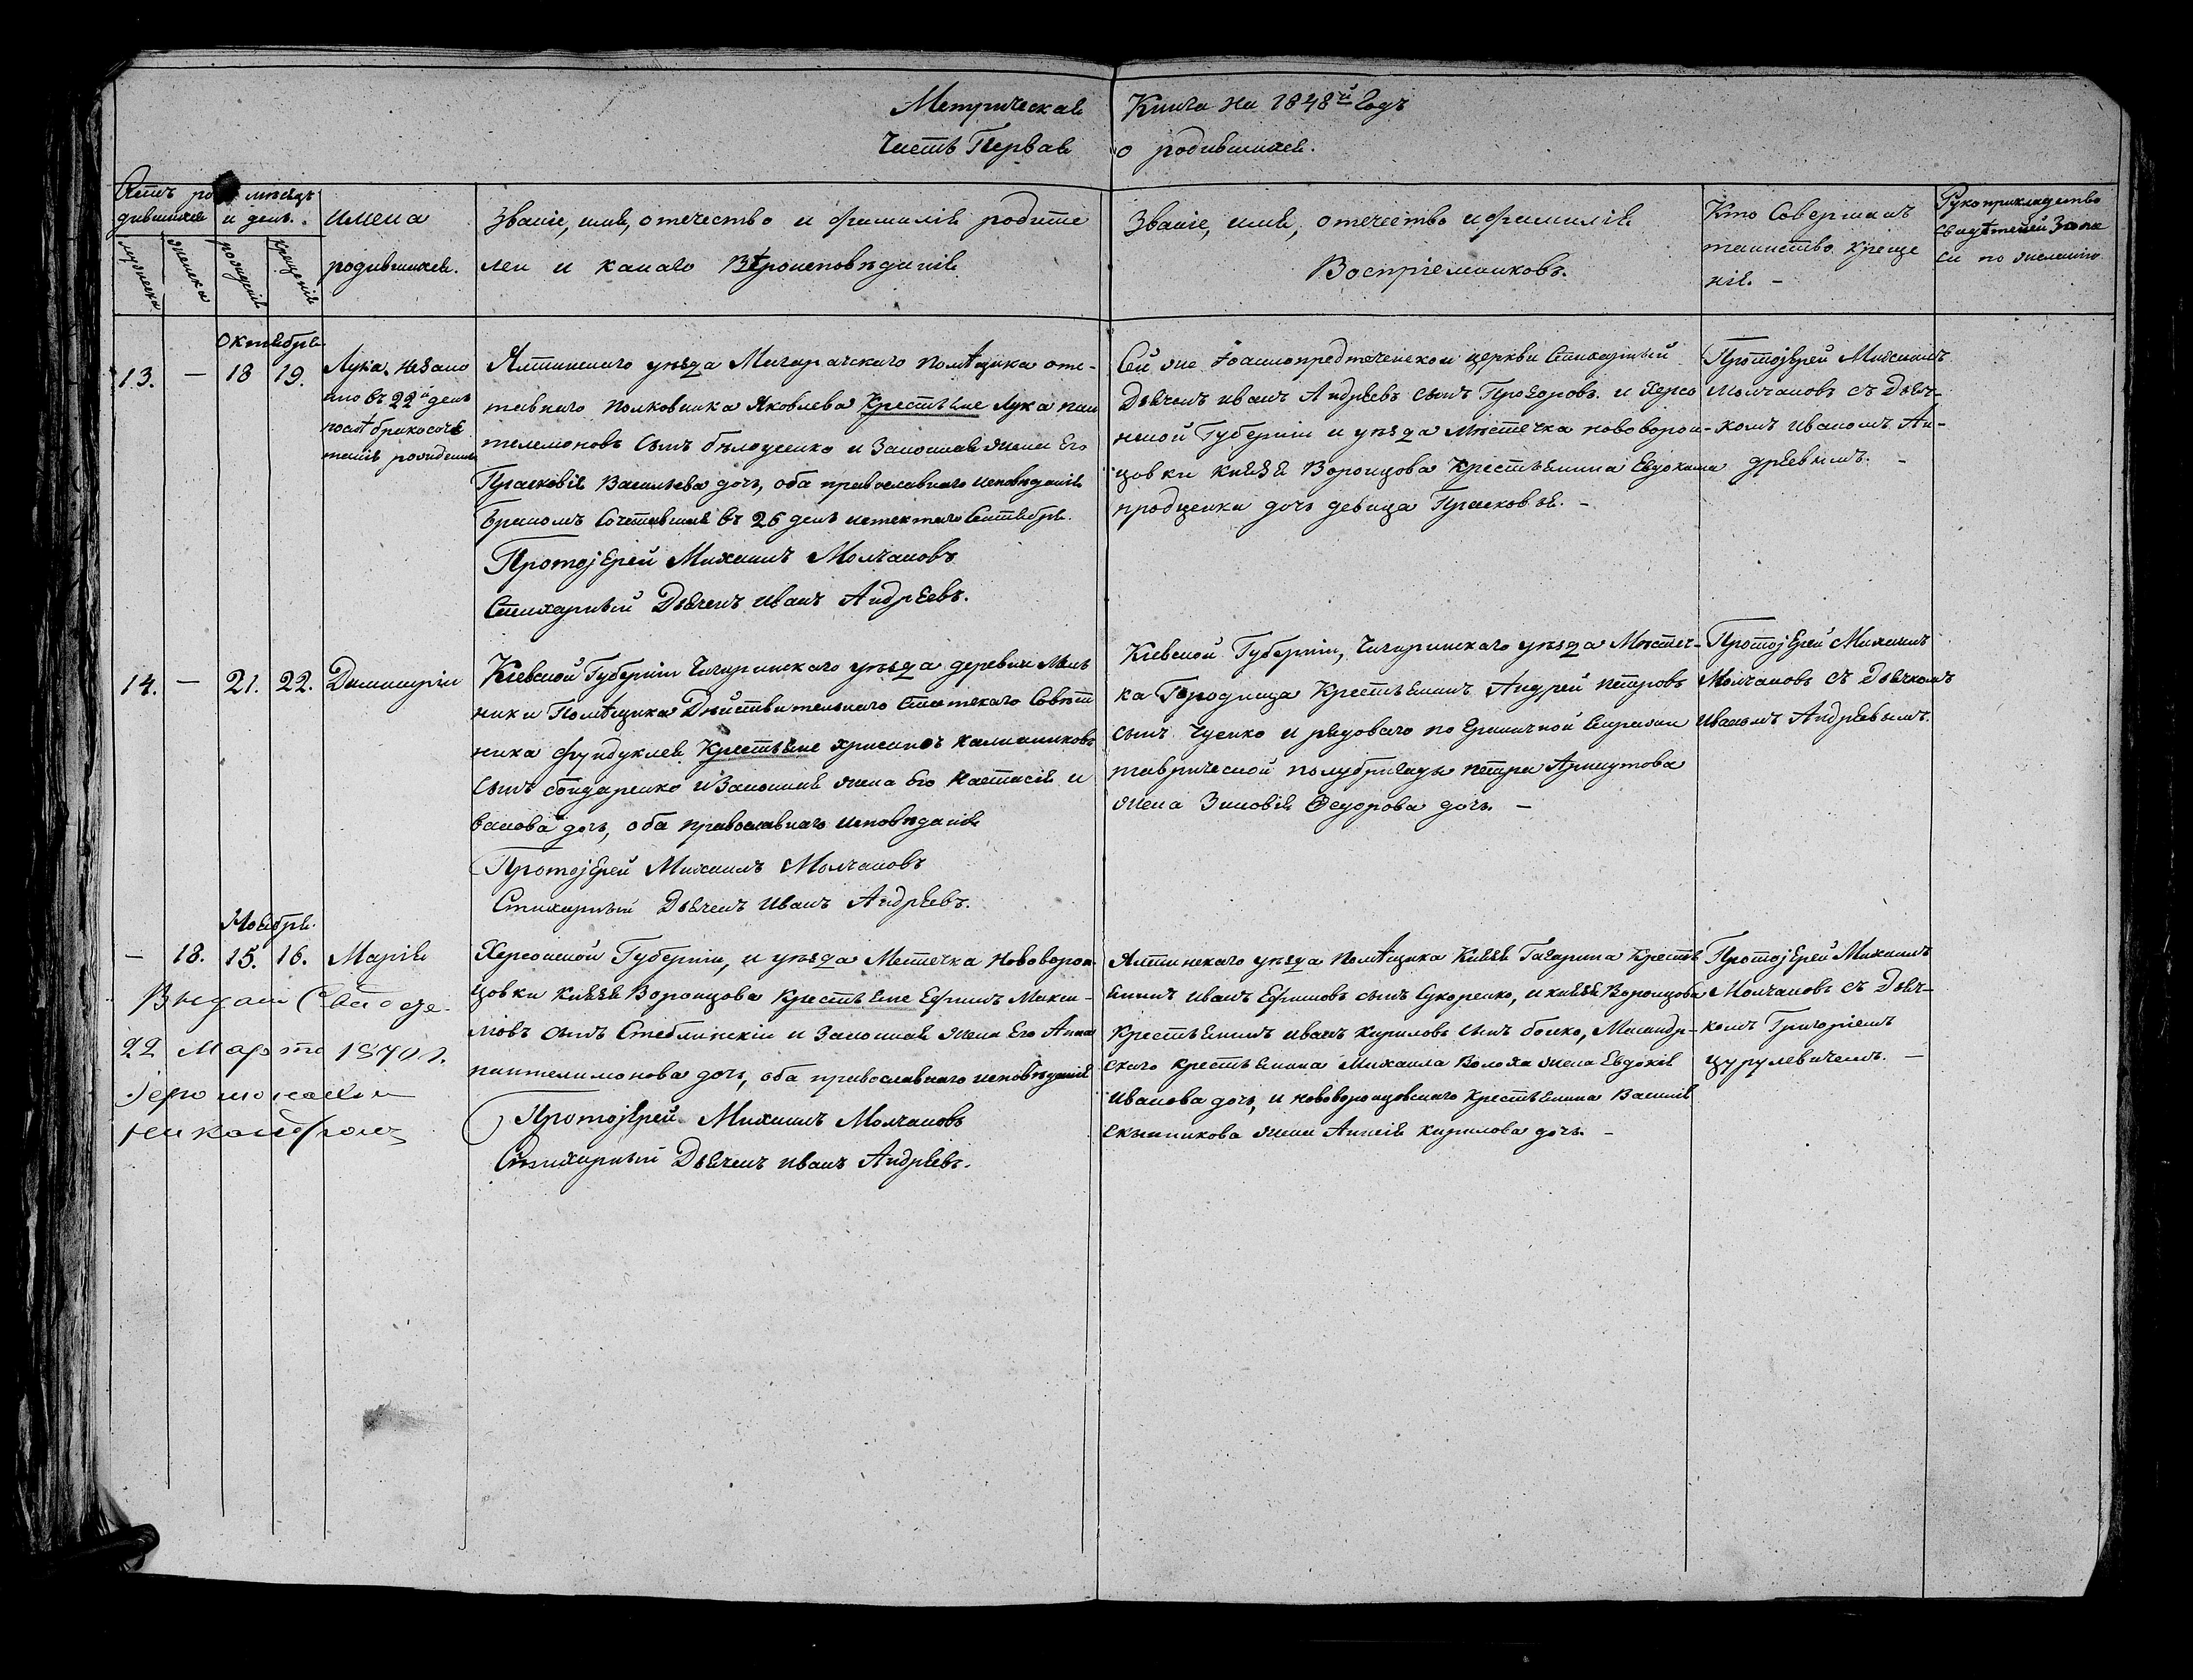 Метрическая Книга на 1848й Годъ
Часть Первая о родившихся.
Счетъ ро
дившихся
мѣсяцъ
и день.
мужеска
женска
рожденія
крещенія
имена
родившихся.
Званіе, имя, отечество и фамилія родите
лей и какаго Вѣроисповѣданія.
Званіе, имя, отечество и фамилія
Воспріемниковъ.
Кто Совершалъ
таинство креще
нія. -
Рукоприкладство
свидѣтелей Запи
си по желанію
Октября
13. — 18 19.
Лука.
въ 22й день
рожденъ
Ялтинскаго уѣзда Магарачскаго помѣщика отс-
тавнаго полковника Яковлева Крестьяне Лука пан
телемоновъ сынъ бѣлоусенко и Законная жена Его
Прасковія Васильева дочь, оба православнаго исповѣданія
бракомъ Сочетавшіеся въ 26 день истекшаго Сентября.
Протоjерей Михаилъ Молчановъ
Стихарный Дьячекъ иванъ Андреевъ.
Сей же Іоаннопредтеченской церкви Стихарный
Дьячекъ иванъ Андреевъ сынъ Прозоровъ. и Херсо
нской Губерніи и уѣзда Мѣстечка нововорон-
цовки князя Воронцова Крестьянина Евдокима
проценки дочь девица Прасковья. -
Протоjерей Михаилъ
Молчановъ съ Дьяч-
комъ иваномъ Ан-
дреевымъ. -
14. — 21. 22. Димитрій
Кіевской Губерніи Чигиринскаго уѣзда деревни Мель
ники Помѣщика Дѣйствительнаго Статскаго Совѣт
ника фундуклея Крестьяне хрисанфъ калинниковъ
сынъ бондаренко и Законная жена Его Настасія и
ванова дочь, оба православнаго исповѣданія
Протоjерей Михаилъ Молчановъ
Стихарный Дьячекъ иванъ Андреевъ.
Кіевской Губерніи, Чигиринскаго уѣзда Мѣстеч-
ка Городища Крестьянинъ Андрей петровъ
сынъ Гусенко и рядоваго пограничной Стражи
таврической полубригады петра Аршутова
жена Зиновія Федорова дочь. -
Протоjерей Михаилъ
Молчановъ съ Дьячкомъ
иваномъ Андреевымъ.
Ноября.
— 18. 15. 16. Марія
Херсонской Губерніи, и уѣзда Местечка нововорон
цовки князя Воронцова Крестьяне Ефимъ Макси-
мовъ сынъ Стеблинскій и Законная жена Его Анна
пантелимонова дочь, оба православнаго исповѣданія
Протоjерей Михаилъ Молчановъ
Стихарный Дьячекъ иванъ Андреевъ.
Ялтинскаго уѣзда помѣщика Князя Гагарина Кресть
янинъ иванъ Ефимовъ сынъ Сукоренко, и князя Воронцова
Крестьянинъ иванъ кириловъ сынъ бойко, Массандр-
скаго крестьянина Михаила Волоха жена Евдокія
иванова дочь, и нововоронцовскаго Крестьянина Василія
жена Анисія кирилова дочь. -
Протоjерей Михаилъ
Молчановъ съ Дьяч-
комъ Григоріемъ
цурулевичемъ. -
Выдан
22 Марта 1870 г.
Іеромонахом
Никандромъ